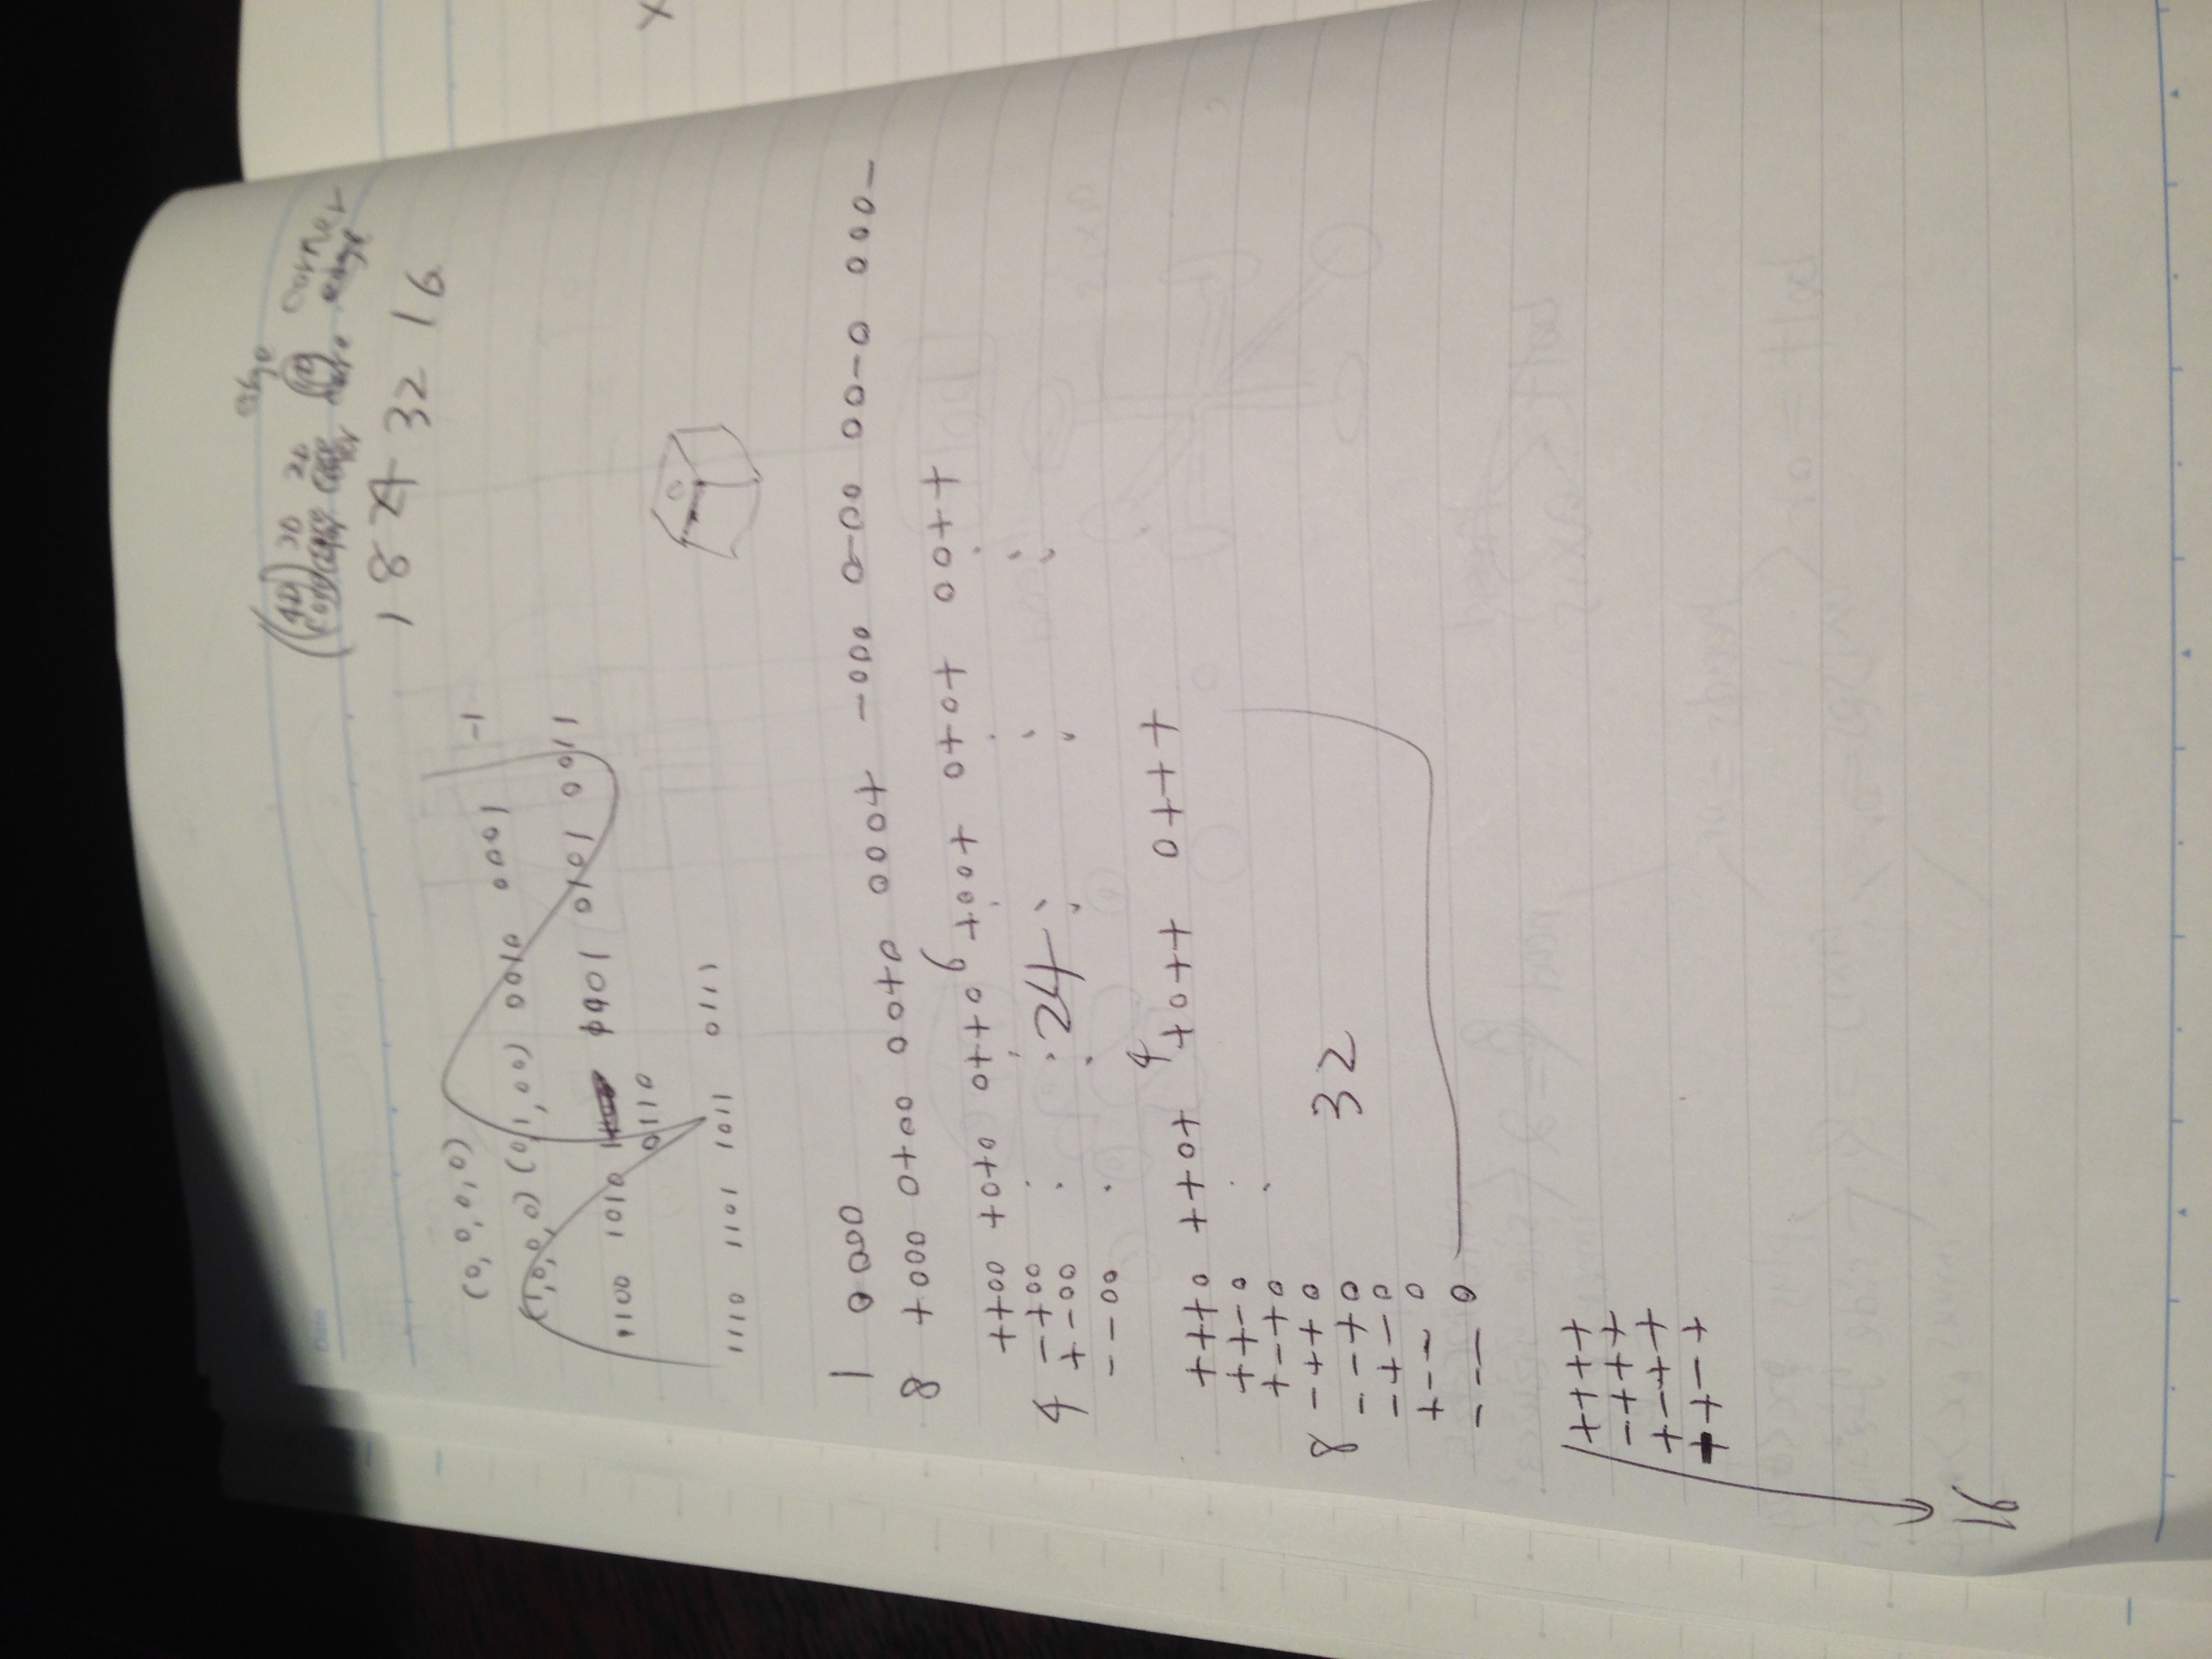 Date
edge
(4D) 3D 2D 1D corner
core core core core edge
1 8 24 32 16
(0,0,0,0)
(1,0,0,0) (0,1,00) 0010 0001 -1
1100 1010 1001 0101 0011
0110
1110 1101 1011 0111
1 0000
8 +000 0+00 00+0 000+ -000 0-00 00-0 000-
6
++00 +0+0 0++0 +00+ 0+0+ 00++
-+00
4 +-00 24
--00
4
+++0 ++0+ +0++ 0+++
++-0
+-+0
8 -++0
--+0 32
-+-0
+--0
---0
++++
-+++
+-++
++-+
16